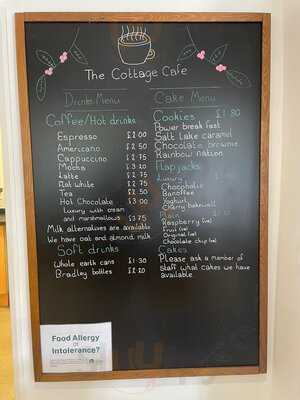 The Cottage Cafe
Drinks Menu
Coffee/Hot drinks
Espresso £2.00
Americano £2.50
Cappuccino £2.75
Mocha £3.20
Latte £2.75
Flat white £2.75
Tea £2.50
Hot Chocolate £3.00
Luxury with cream
and marshmallows £3.75
Milk alternatives are available
We have oat and almond milk.
Soft drinks
Whole earth cans £1.30
Bradley bottles £2.20
Cake Menu
Cookies £1.80
Power break fast
Salt Lake caramel
Chocolate brownie
Rainbow nation
Flapjacks
Luxury
Chocoholic
Banoffee
Yoghurt
Cherry bakewell
Plain
Raspberry
Fruit
Original
Chocolate chip
Cakes
Please ask a member of
Staff what cakes we have
available
Food Allergy
or
Intolerance?